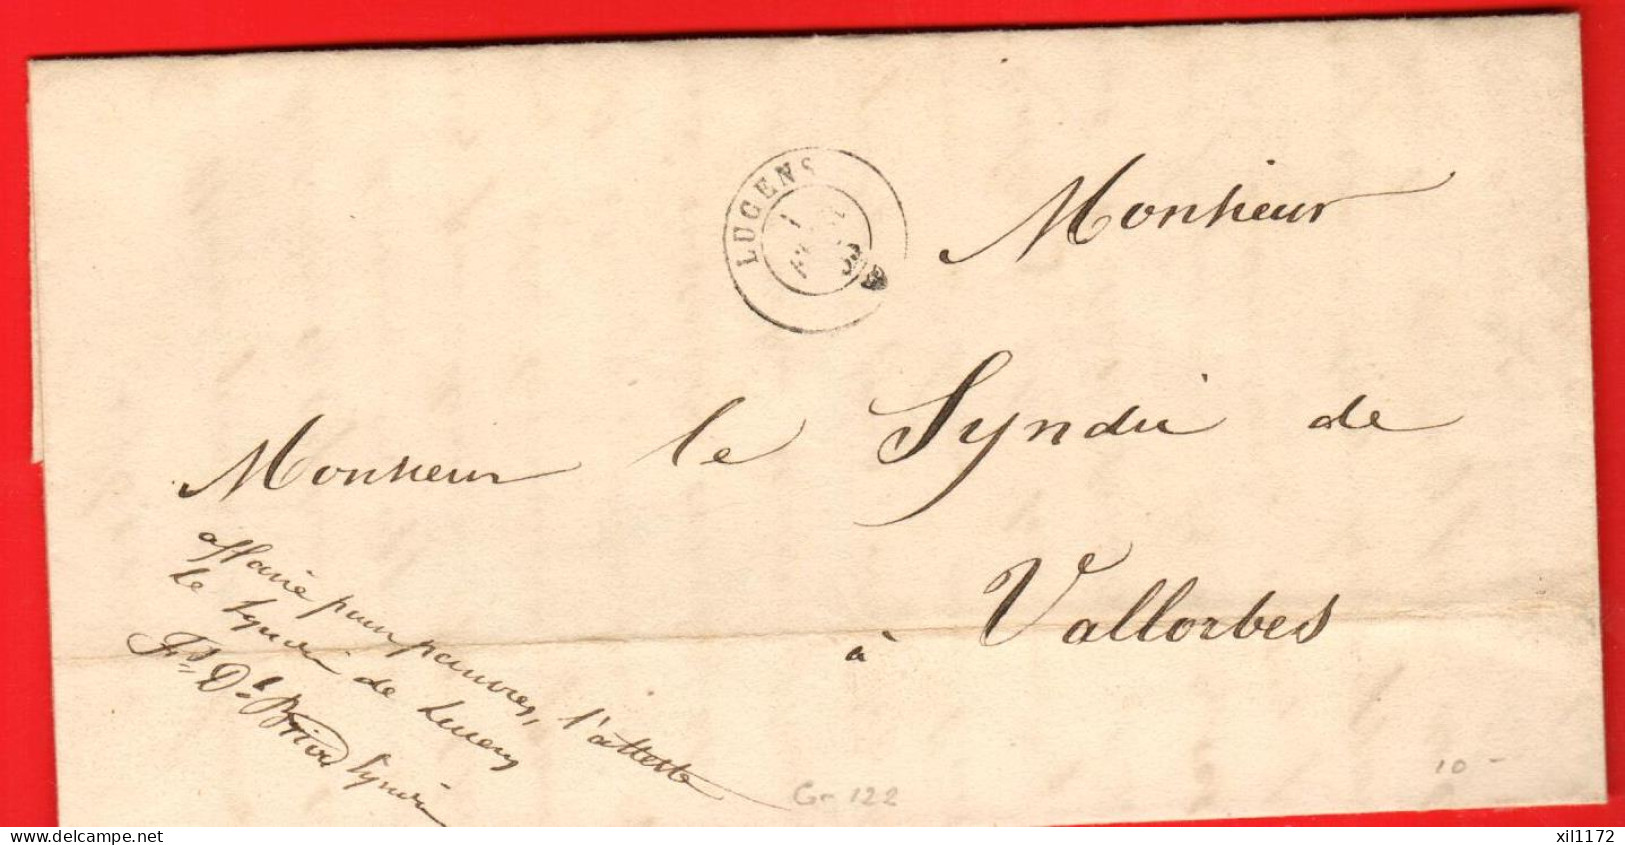 LUCENS
1
Monsieur
Monsieur le Syndic de
à Vallorbes
affaire pour pauvres, l'atteste
le Syndic de Lucens
Syndic
Gr 122
10 -
delcampe.net
xil1172